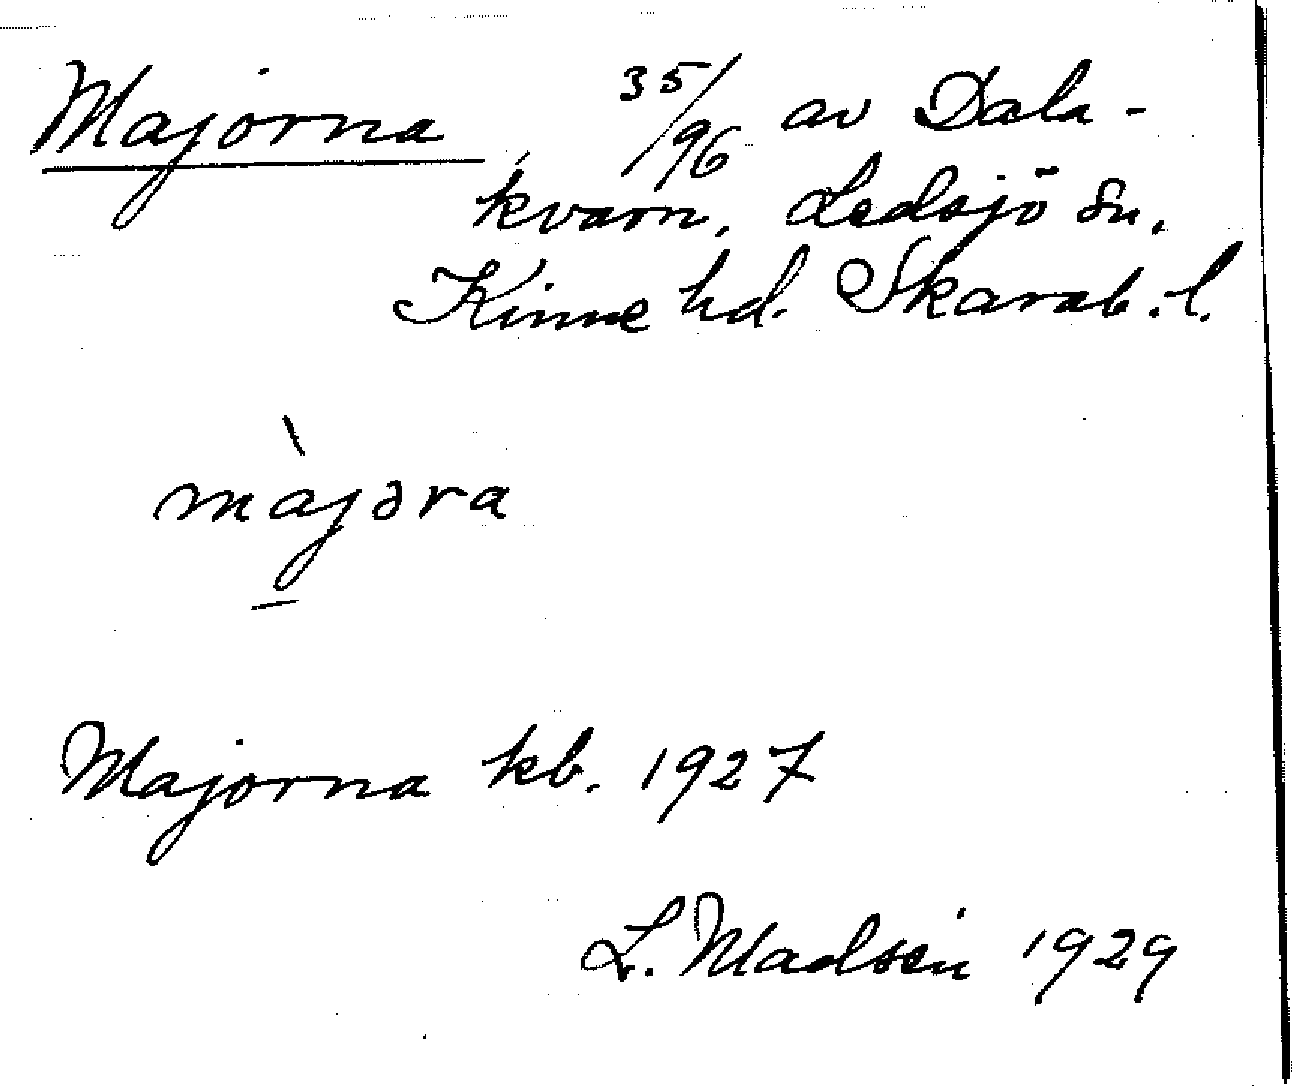 Majorna, 35/96 av Dala-
kvarn, Ledsjö sn,
Kinne hd. Skarab. l.
màjəra
Majorna kb. 1927
L. Madsén 1929